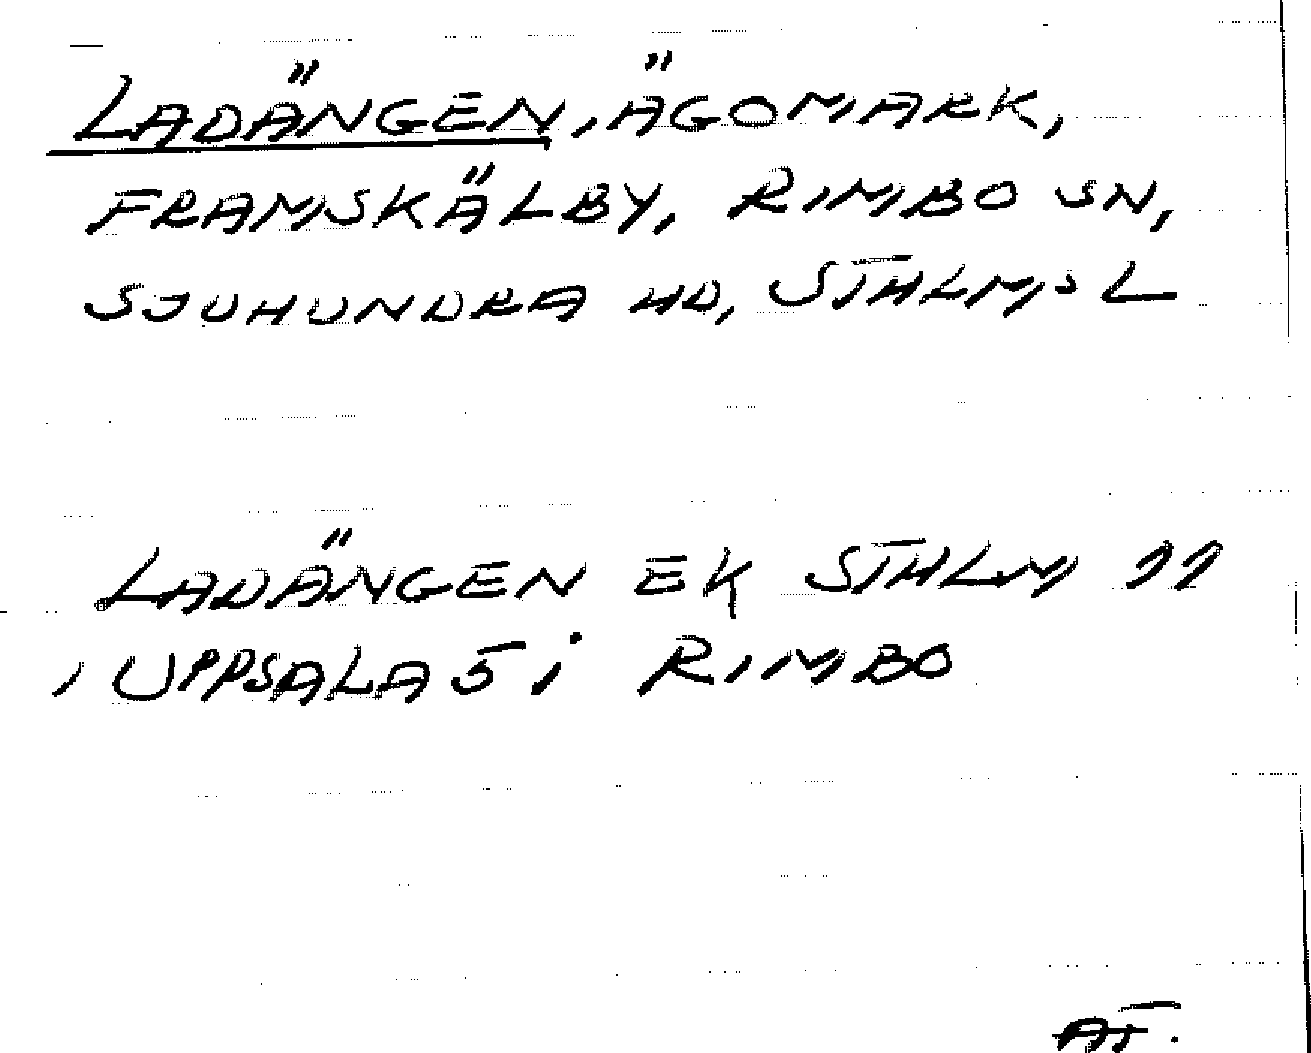 LADÄNGEN, ÄGOMARK,
FRAMSKÄLBY, RIMBO SN,
SJUHUNDRA HD, STHLMS L
LADÄNGEN EK STHLM 99
, UPPSALA 5 i RIMBO
AT.